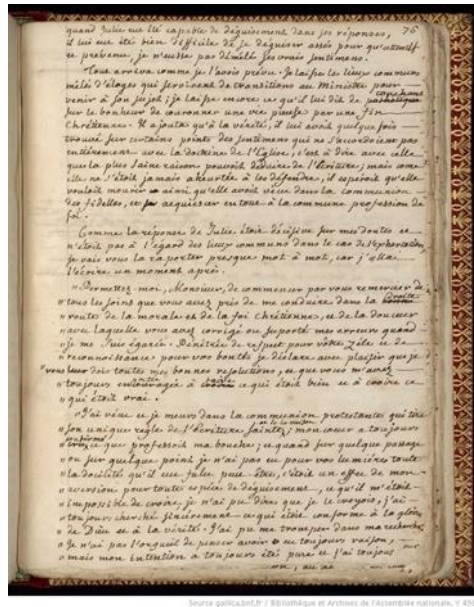 76
quand Julie eut été capable de déguisement dans ses réponses,
il lui eut été bien difficile de se déguiser assés pour qu'attentif
et prévenu, je n'eusse pas démêlé ses vrais sentimens.
Tout arriva comme je l'avois prévu. Je laisse les lieux communs
mêlés d'éloges qui servirent de transitions au Ministre pour
venir à son sujet; je laisse encore ce qu'il lui dit de touchant
sur le bonheur de couronner une vie par une fin
Chrétienne. Il ajouta qu'à la vérité, il lui avoit quelque fois
trouvé sur certains points des sentimens qui ne s'accordoient pas
entièrement avec la doctrine de l'Eglise, c'est à dire avec celle
que la plus saine raison pouvoit déduire de l'Ecriture; mais come
elle ne s'étoit jamais aheurtée à les défendre, il espéroit qu'elle
vouloit mourir ainsi qu'elle avoit vécu dans la communion
des fidelles, et acquiescer en tout à la commune profession de
foi.
Comme la réponse de Julie étoit décisive sur mes doutes et
n'étoit pas à l'égard des lieux communs dans le cas de l'exhortation,
je vais vous la raporter presque mot à mot, car j'allai
l'écrire un moment après.
"Permettez-moi, Monsieur, de commencer par vous remercier de
"tous les soins que vous avez pris de me conduire dans la droite
"route de la morale et de la foi chrétienne, et de la douceur
"avec laquelle vous avez corrigé ou suporté mes erreurs quand
"je me suis égarée. Pénétrée de respect pour vôtre zèle et de
"reconnoissance pour vos bontés je déclare avec plaisir que je
"vous dois toutes mes bonnes résolutions, et que vous m'avez
"toujours à faire ce qui étoit bien et à croire ce
"qui étoit vrai.
"J'ai vécu et je meurs dans la communion protestante qui tire
"son unique règle de l'Ecriture Sainte et de la raison; mon cœur a toujours
"confirmé ce que professoit ma bouche; et quand sur quelque passage
"ou sur quelque point je n'ai pas eu pour vos lumières toute
"la docilité qu'il eut falu peut-être, c'étoit un effet de mon
"aversion pour toute espèce de déguisement, ce qu'il m'étoit
"impossible de croire, je n'ai pu dire que je le croyois; j'ai
"toujours cherché sincèrement ce qui étoit conforme à la gloire
"de Dieu et à la vérité. J'ai pu me tromper dans ma recherche;
"Je n'ai pas l'orgueil de penser avoir eu toujours raison,
"mais mon intention a toujours été pure et j'ai toujours
Source gallica.bnf.fr / Bibliothèque et Archives de l'Assemblée nationale,